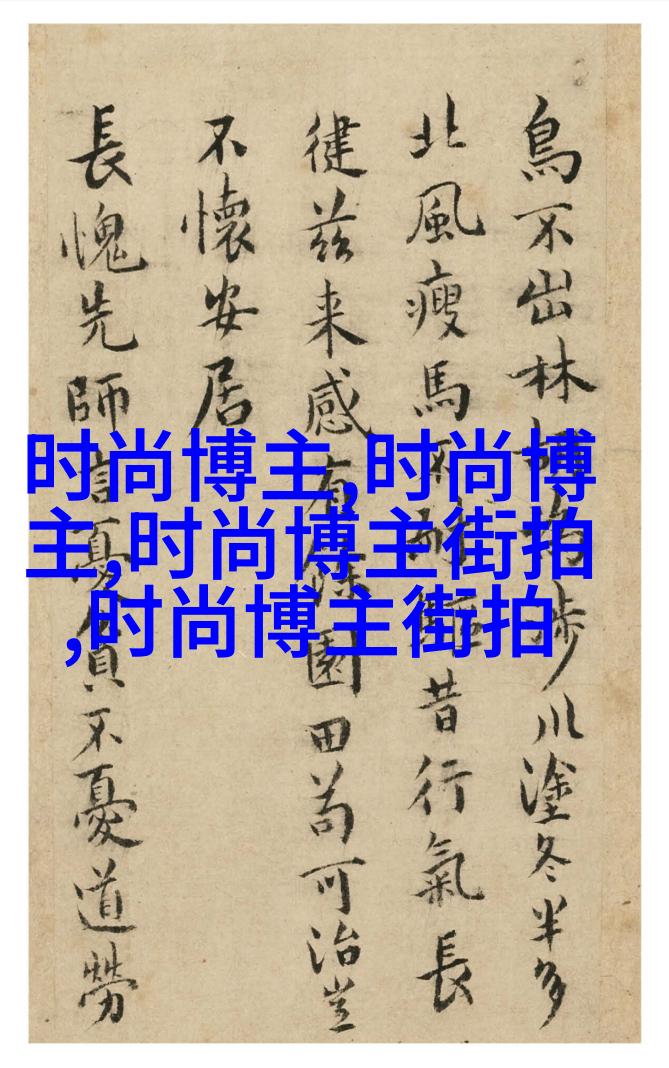 鳥不出林步川塗冬半多
北風瘦馬不昔行氣長
徤茲来感有餘園田苟可治豈
不懷安居
長愧先師言憂貧不憂道勞
时尚博主,时尚博
主,时尚博主街拍
,时尚博主街拍